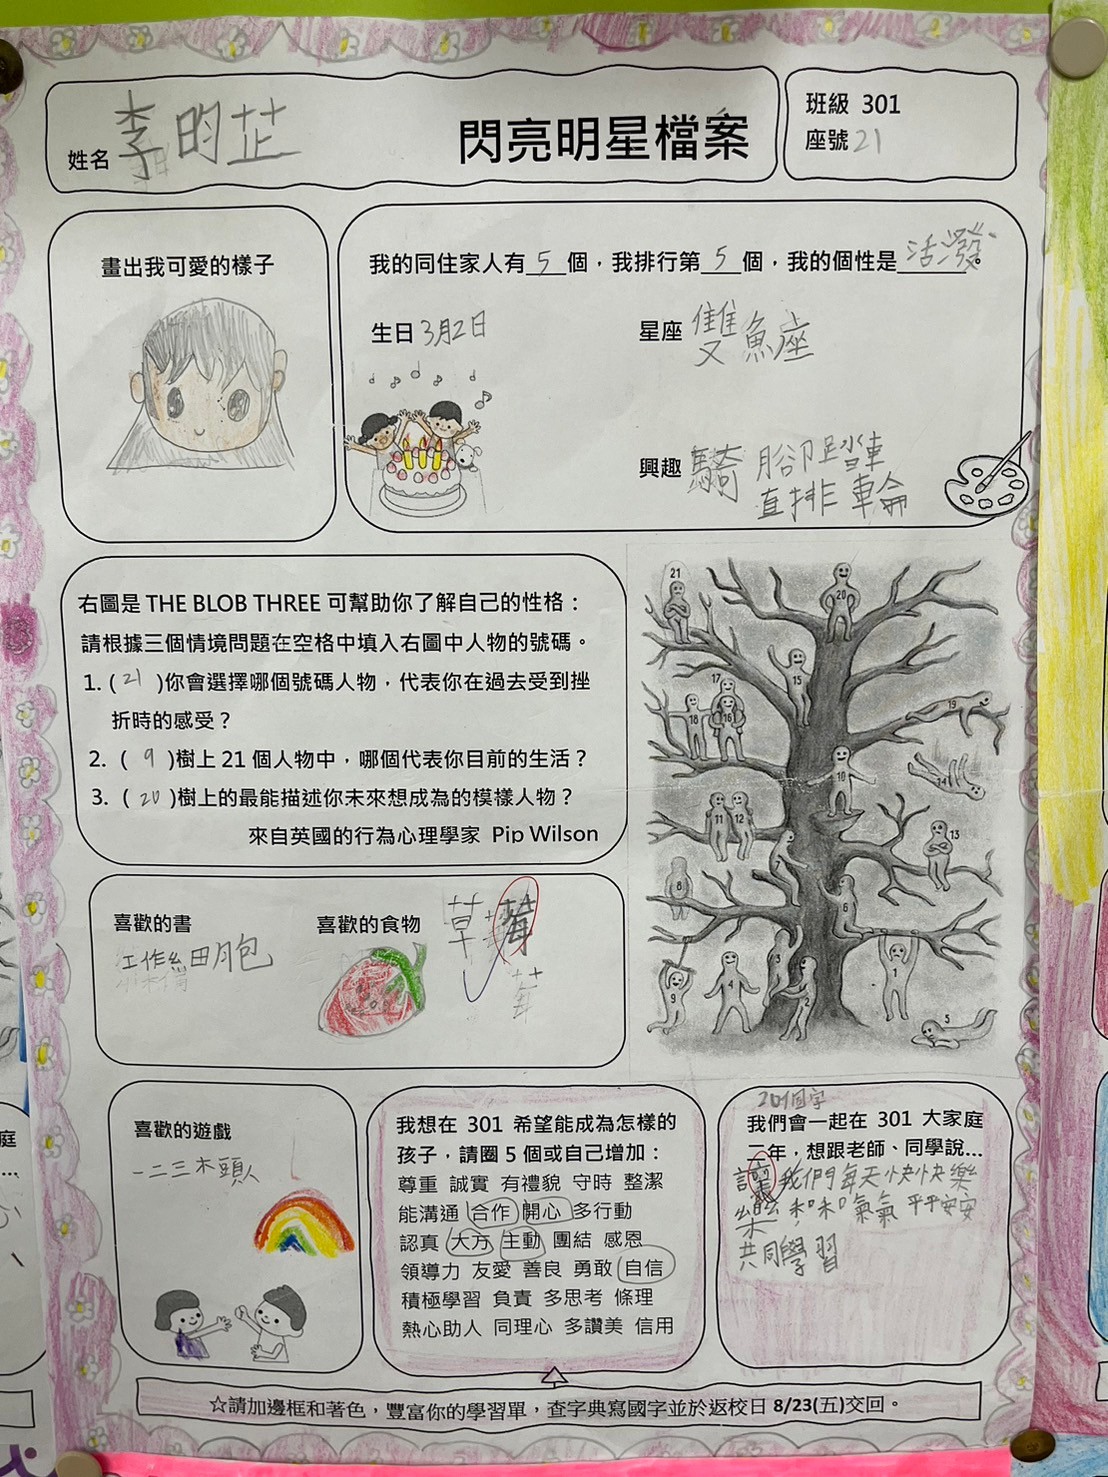 姓名 李昀芷
閃亮明星檔案
班級 301
座號 21
畫出我可愛的樣子
我的同住家人有 5 個，我排行第 5 個，我的個性是 活潑。
生日 3月2日
星座 雙魚座
興趣 騎腳踏車
直排輪
右圖是 THE BLOB THREE 可幫助你了解自己的性格：
請根據三個情境問題在空格中填入右圖中人物的號碼。
1. ( 21 )你會選擇哪個號碼人物，代表你在過去受到挫
折時的感受？
2. ( 9 )樹上 21 個人物中，哪個代表你目前的生活？
3. ( 20 )樹上的最能描述你未來想成為的模樣人物？
來自英國的行為心理學家 Pip Wilson
21
20
17
15
18
16
19
10
14
11
12
13
7
8
6
3
1
9
4
2
5
喜歡的書
工作細胞
喜歡的食物
草莓
莓
喜歡的遊戲
一二三木頭人
我想在 301 希望能成為怎樣的
孩子，請圈 5 個或自己增加：
尊重 誠實 有禮貌 守時 整潔
能溝通 合作 開心 多行動
認真 大方 主動 團結 感恩
領導力 友愛 善良 勇敢 自信
積極學習 負責 多思考 條理
熱心助人 同理心 多讚美 信用
20個字
我們會一起在 301 大家庭
二年，想跟老師、同學說...
讓我們每天快快樂
樂 和和氣氣 平平安安
共同學習
☆請加邊框和著色，豐富你的學習單，查字典寫國字並於返校日 8/23(五)交回。
庭
...